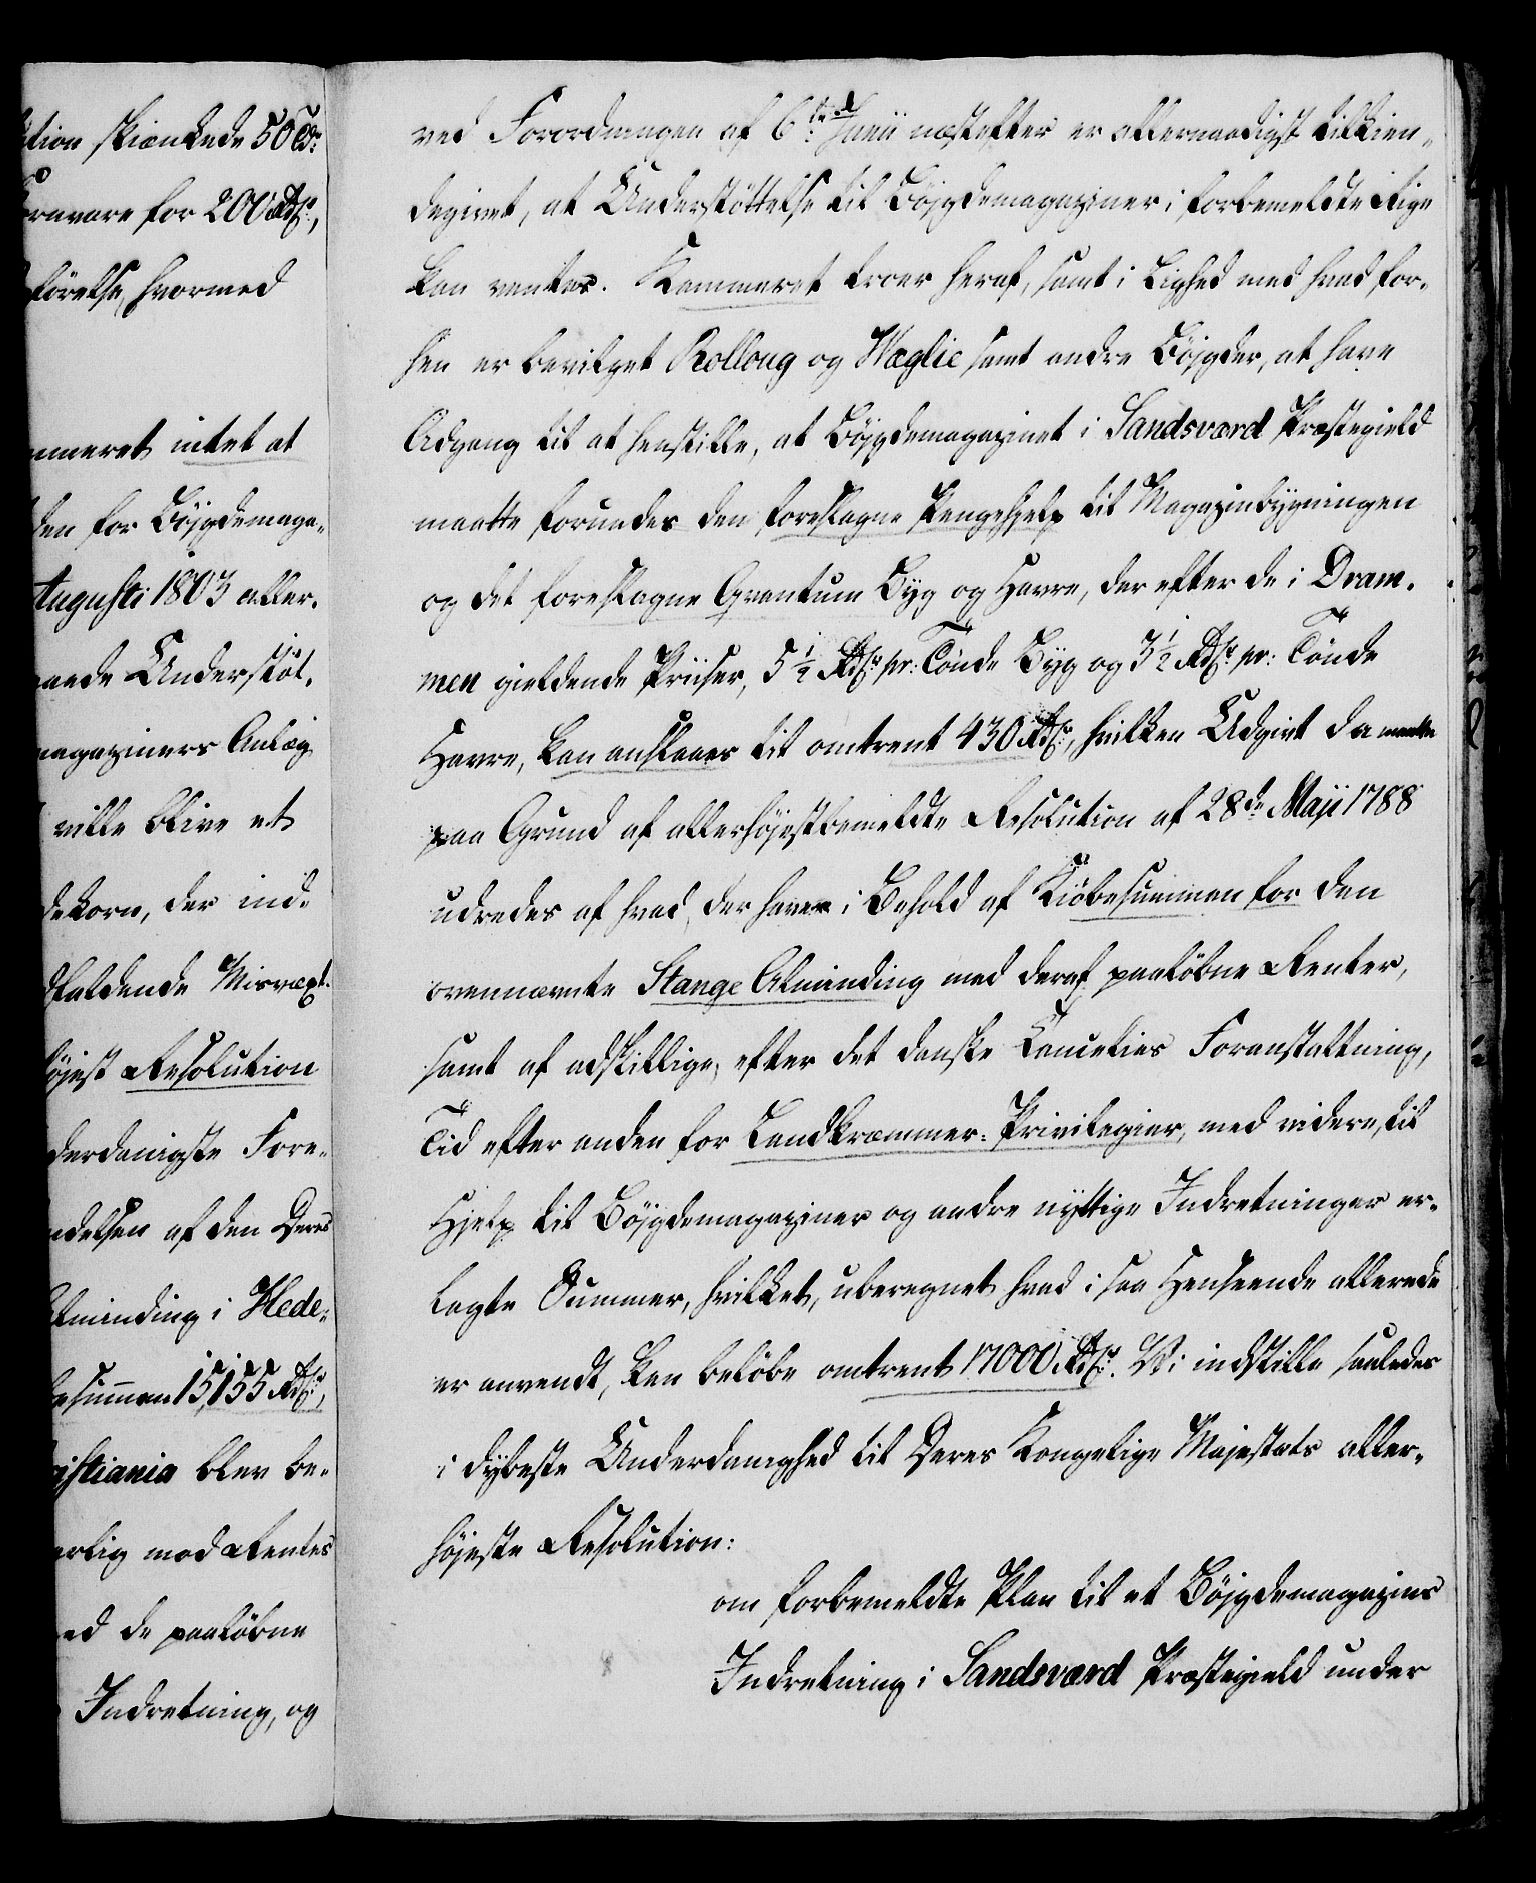 ition skiænkede 50 Tdr.
ornvare for 200 Rdlr.,
førelse, hvormed
mmeret intet at
den for Böjgdemaga-
Augusti 1803 aller-
nede Understöt-
magaziners Anlæg
ville blive et
dekorn, der ind-
dfaldende Misvæxt-
höjest Resolution
derdanigste Fore-
ndelsen af den Deres
Alminding i Hede-
esummen 15,155 Rdlr.,
ristiania blev be-
erlig mod Rentes
ed de paalöbne
Indretning, og
ved Forordningen af 6te Junii næstefter er allernaadigst tilkien-
degivet, at Understöttelse til Böjgdemagaziner i forbemeldte Rige
kan ventes. Kammeret troer heraf, samt i Lighed med hvad for-
hen er bevilget Rolloug og Wæglie samt andre Böjgder, at have
Adgang til at henstille, at Böjgdemagazinet i Sandsværd Præstegield
maatte forundes den foreslagne Pengehjelp til Magazinbygningen
og det foreslagne Qvantum Byg og Havre, der efter de i Dram-
men gieldende Priiser, 5 1/2 Rdlr. pr: Tönde Byg og 3 1/2 Rdlr. pr: Tönde
Havre, kan anslaaes til omtrent 430 Rdlr., hvilken Udgivt da maatte
paa Grund af allerhöjestbemeldte Resolution af 28de Maji 1788
udredes af hvad der haves i Behold af Kiöbesummen for den
ovennævnte Stange Alminding med deraf paalöbne Renter,
samt af adskillige, efter det danske Cancelies Foranstaltning,
Tid efter anden for Landkræmmer-Privilegier, med videre, til
Hjelp til Böjgdemagaziner og andre nyttige Indretninger er-
lagte Summer, hvilket, uberegnet hvad i saa Henseende allerede
er anvendt, kan belöbe omtrent 17000 Rdlr. Vi indstille saaledes
i dybeste Underdanighed til Deres Kongelige Majestæts aller-
höjeste Resolution:
om forbemeldte Plan til et Böjgdemagazins
Indretning i Sandsværd Præstegield under